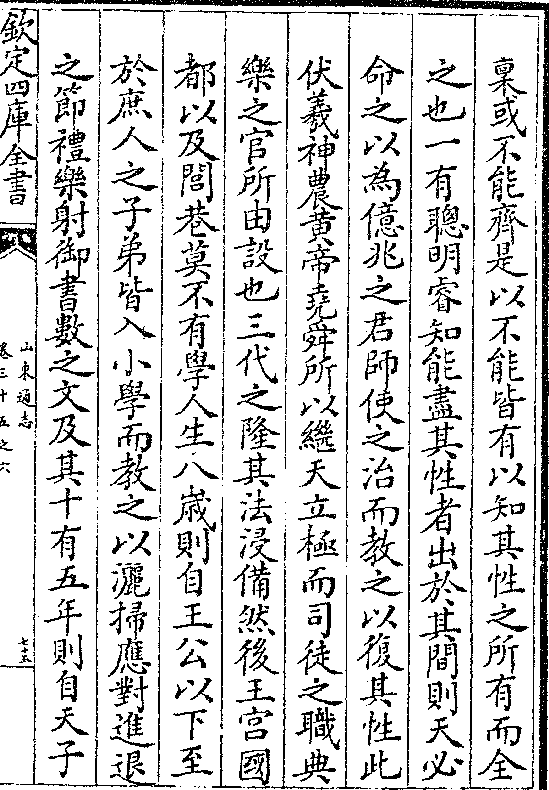 稟或不能齊是以不能皆有以知其性之所有而全
之也一有聰明睿知能盡其性者出於其間則天必
命之以為億兆之君師使之治而教之以復其性此
伏羲神農黄帝堯舜所以繼天立極而司徒之職典
樂之官所由設也三代之隆其法浸備然後王宮國
都以及閭巷莫不有學人生八歲則自王公以下至
於庶人之子弟皆入小學而教之以灑掃應對進退
之節禮樂射御書數之文及其十有五年則自天子
欽定四庫全書
山東通志
卷三十五之六
七十五